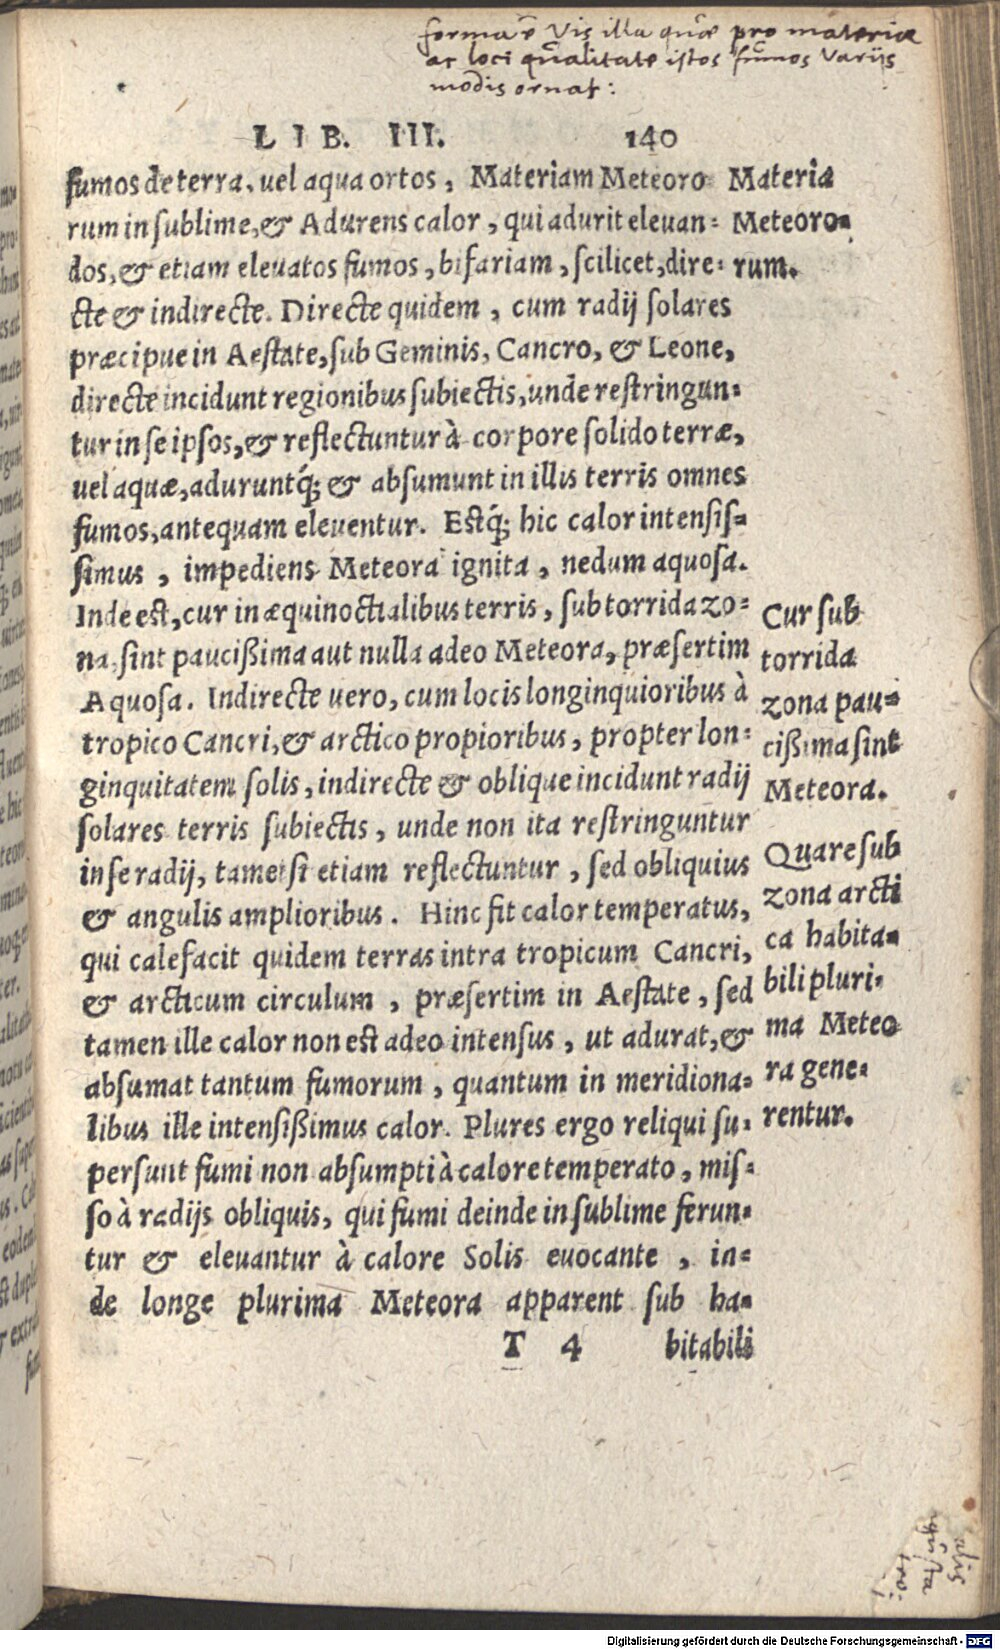 forma ē Vis illa quæ pro materiæ
ac loci qualitate istos fumos variis
modis ornat:
LIB. III. 140
fumos de terra, uel aqua ortos, Materiam Meteoro
rum in sublime, & Adurens calor, qui adurit eleuan-
dos, & etiam eleuatos fumos, bifariam, scilicet, dire-
cte & indirecte. Directe quidem, cum radij solares
præcipue in Aestate, sub Geminis, Cancro, & Leone,
directe incidunt regionibus subiectis, unde restringun-
tur in se ipsos, & reflectuntur à corpore solido terræ,
uel aquæ, aduruntq́; & absumunt in illis terris omnes
fumos, antequam eleuentur. Estq́; hic calor intensis-
simus, impediens Meteora ignita, nedum aquosa.
Inde est, cur in æquinoctialibus terris, sub torrida zo-
na, sint paucißima aut nulla adeo Meteora, præsertim
Aquosa. Indirecte uero, cum locis longinquioribus à
tropico Cancri, & arctico propioribus, propter lon-
ginquitatem solis, indirecte & oblique incidunt radij
solares terris subiectis, unde non ita restringuntur
in se radij, tametsi etiam reflectuntur, sed obliquius
& angulis amplioribus. Hinc fit calor temperatus,
qui calefacit quidem terras intra tropicum Cancri,
& arcticum circulum, præsertim in Aestate, sed
tamen ille calor non est adeo intensus, ut adurat, &
absumat tantum fumorum, quantum in meridiona-
libus ille intensißimus calor. Plures ergo reliqui su-
persunt fumi non absumpti à calore temperato, mis-
so à radijs obliquis, qui fumi deinde in sublime ferun-
tur & eleuantur à calore Solis euocante, in-
de longe plurima Meteora apparent sub ha-
T 4 bitabili
Materia
Meteoro-
rum.
Cur sub
torrida
zona pau-
cißima sint
Meteora.
Quare sub
zona arcti
ca habita-
bili pluri-
ma Meteo
ra gene-
rentur.
Digitalisierung gefördert durch die Deutsche Forschungsgemeinschaft - DFG